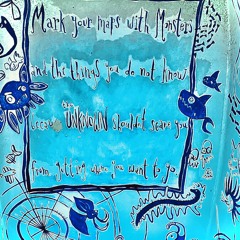 Mark your maps with Monsters
and the things you do not know
the UNKNOWN shouldn't scare you
from getting where you want to go.